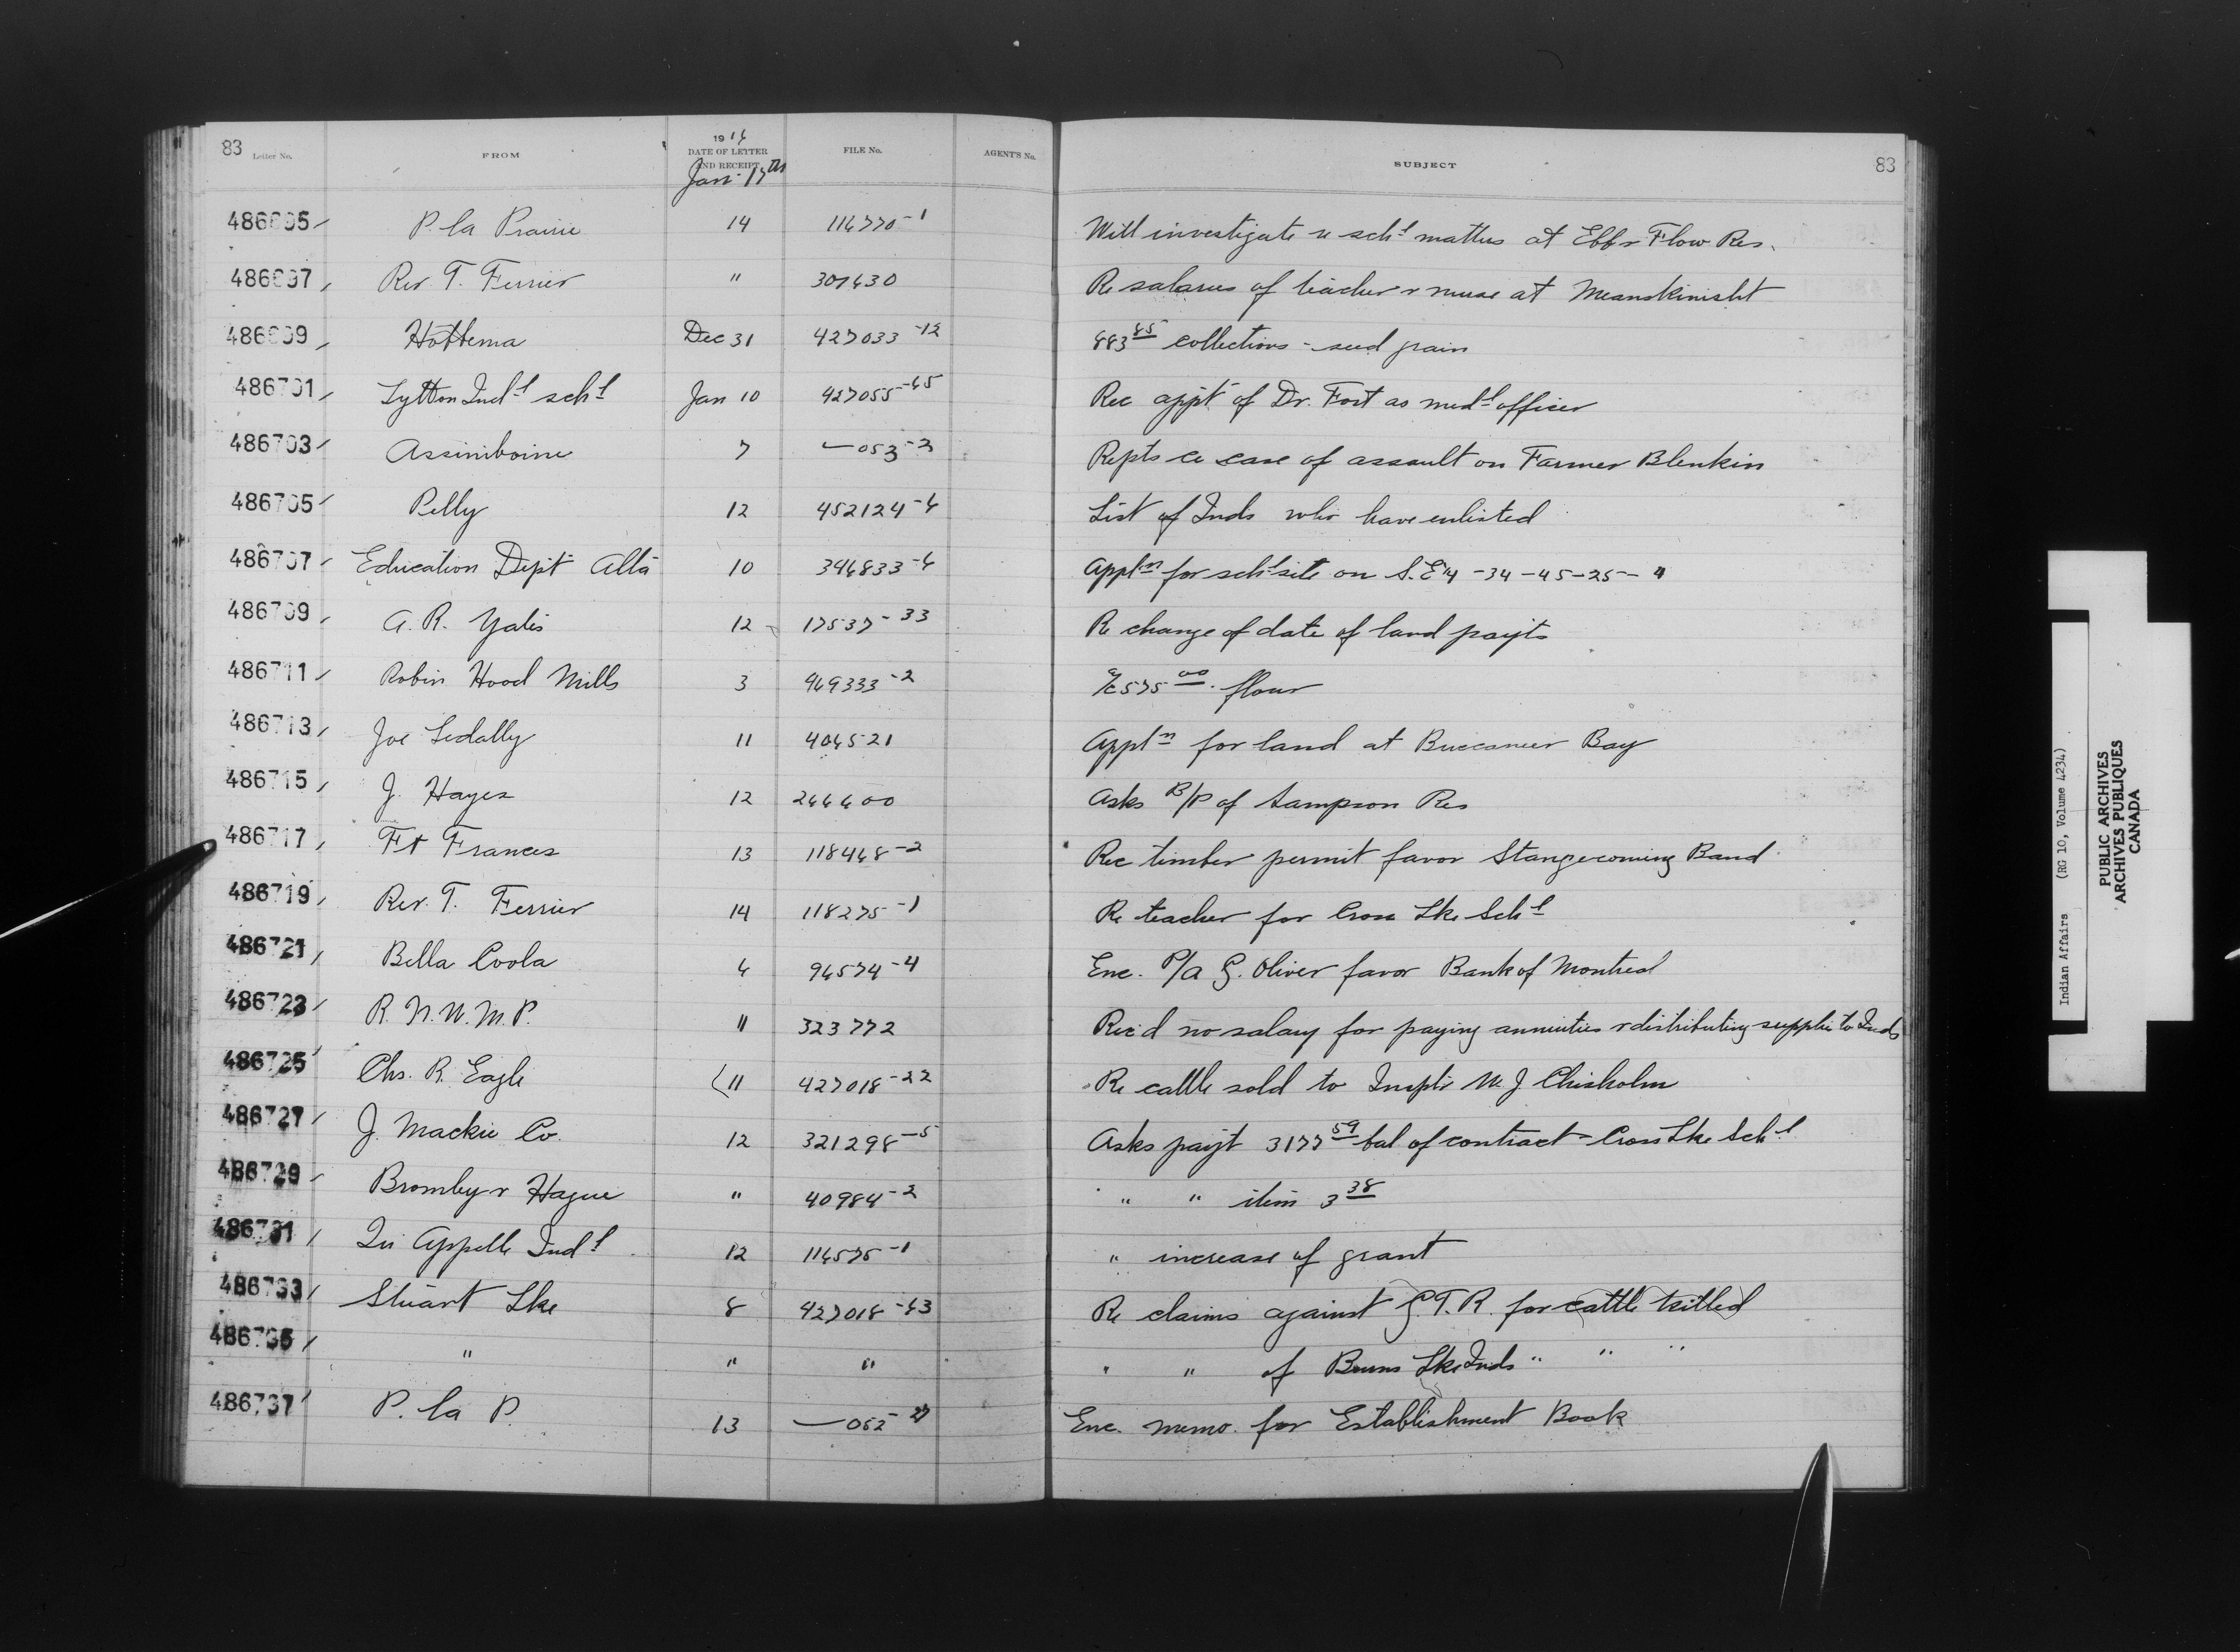 83 Letter No. FROM 1916 DATE OF LETTER AND RECEIPT FILE No. AGENT'S No. SUBJECT 83
Jan. 17th
486695 P. la Prairie 14 116770-1 Will investigate re schl matters at Ebb & Flow Res.
486697 Rev. T. Ferrier " 307630 Re salaries of teacher & nurse at Meanskinisht
486699 Hottema Dec 31 427033-12 883 85 collections - seed grain
486701 Lytton Indl schl Jan 10 427055-65 Rec appt of Dr. Fort as medl officer
486703 Assiniboine 7 — 053-2 Repts re case of assault on Farmer Blenkin
486705 Pelly 12 452124-6 List of Inds who have enlisted
486707 Education Dept Alta 10 346833-6 Appltn for schl site on S.E 1/4 -34-45-25-4
486709 A. R. Yates 12 17537-33 Re change of date of land payts
486711 Robin Hood Mills 3 469333-2 a/c 575 00 flour
486713 Joe Ledally 11 404521 Appltn for land at Buccaneer Bay
486715 J. Hayes 12 266600 Asks B/P of Sampson Res
486717 Ft Frances 13 118468-2 Rec timber permit favor Stangecoming Band
486719 Rev. T. Ferrier 14 118275-1 Re teacher for Cross Lke Schl
486721 Bella Coola 6 94574-4 Enc. P/A G. Oliver favor Bank of Montreal
486723 R. N. W. M. P. 11 323772 Rec'd no salary for paying annuities & distributing supplies to Inds
486725 Chs. R. Eagle 11 427018-22 Re cattle sold to Insptr W. J. Chisholm
486727 J. Mackie Co. 12 321298-5 Asks payt 3177 59 bal of contract - Cross Lke Schl
486729 Bromley & Hague " 40984-2 " " item 3 38
486731 Qu Appelle Indl 12 116575-1 " increase of grant
486733 Stuart Lke 8 427018-63 Re claims against G.T.R. for cattle killed
486735 " " " " " of Burns Lke Inds " " "
486737 P. la P. 13 — 062-27 Enc. memo. for Establishment Book
Indian Affairs (RG 10, Volume 4234)
PUBLIC ARCHIVES
ARCHIVES PUBLIQUES
CANADA